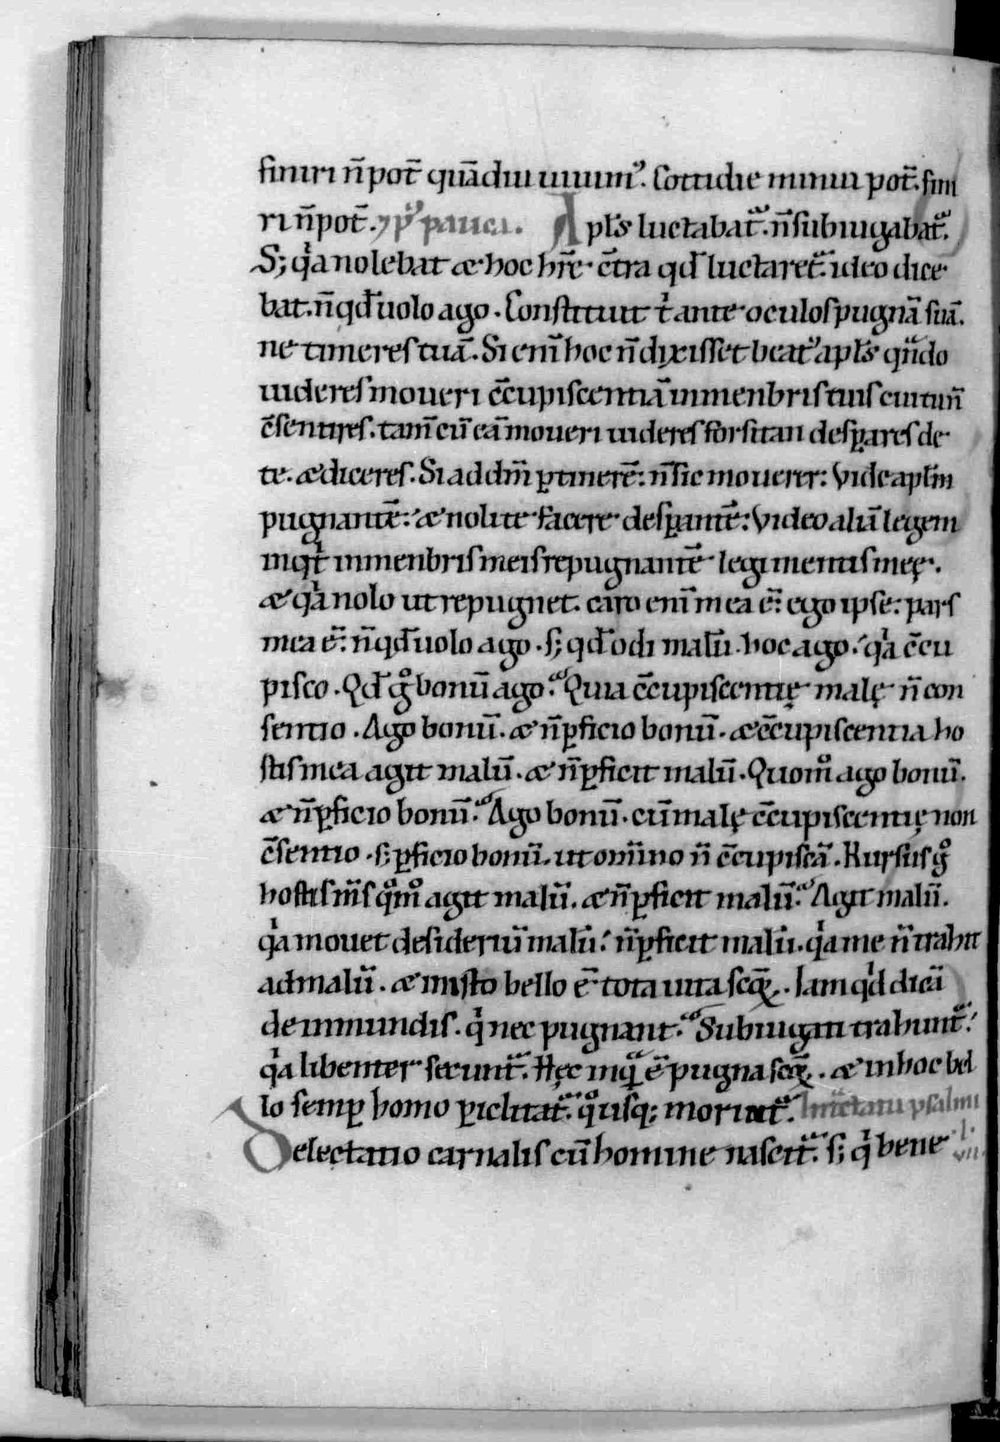 finiri n̄ pot̄ quādiu uiuim᾿. Cottidie minui pot̄. fini
ri n̄ pot̄. ⁊ p᾿ pauca. Apl̄s luctabat᷑. n̄ subiugabat᷑.
S; qͥa nolebat æ hoc hr̄e c̄tra qđ luctaret᷑ ideo dice
bat. n̄ qđ uolo ago. Constituit tͥ ante oculos pugnā suā.
ne timeres tuā. Si enī hoc n̄ dixisset beat᾿ apl̄s qn̄do
uideres moueri c̄cupiscentiā in menbris tuis cui tu n̄
c̄sentires. tam̄ cū eā moueri uideres forsitan desꝑares de
te. æ diceres. Si ad dm̄ ꝑtinerē: n̄ sic mouerer: Vide apl̄m
pugnantē: æ nolite facere desꝑantē: Video aliā legem
inqͥt in menbris meis repugnantē legi mentis meę.
æ qͥa nolo ut repugnet. caro enī mea ē: ego ipse: pars
mea ē: n̄ qđ uolo ago. s; qđ odi malū. hoc ago. qͥa c̄cu
pisco. Qđ gͦ bonū ago? Quia c̄cupiscentię malę n̄ con
sentio. Ago bonū. æ n̄ ꝑficio bonū. æ c̄cupiscentia ho
stis mea agit malū. æ n̄ ꝑficit malū. Quomͦ ago bonū.
æ n̄ ꝑficio bonū? Ago bonū. cū malę c̄cupiscentię non
c̄sentio. s; ꝑficio bonū. ut om̄ino n̄ c̄cupiscā. Rursus gͦ
hostis m̄s qͦmͦ agit malū. æ n̄ ꝑficit malū? Agit malū.
qͥa mouet desideriū malū: n̄ ꝑficit malū. qͥa me n̄ trahit
ad malū. æ in isto bello ē tota uita scōꝝ. Iam qͥd dicā
de inmundis. qͥ nec pugnant? Subiugati trahunt᷑:
qͥa libenter secunt᷑. Hęc inquā ē pugna scōꝝ. æ in hoc bel
lo semꝑ homo ꝑiclitat᷑. qͦusq; moriat᷑. In tractatu psalmi
Delectatio carnalis cū homine nascit᷑. s; qͥ bene .l.
vii.